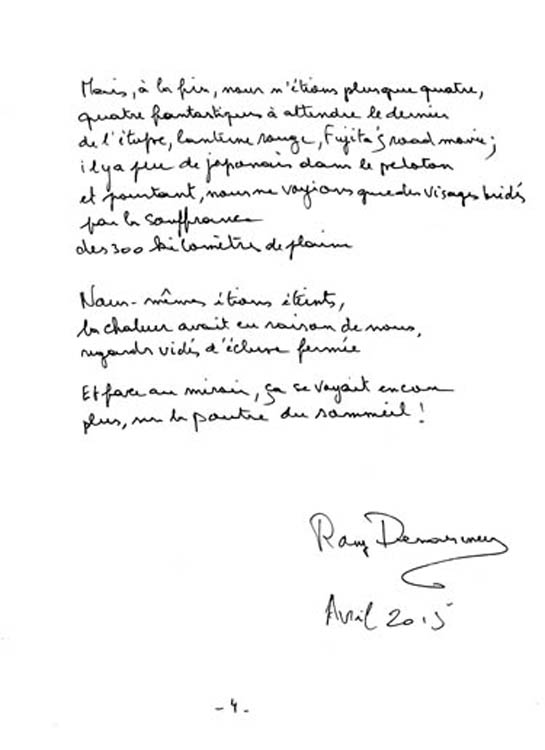 Mais, à la fin, nous n'étions plus que quatre,
quatre fantastiques à attendre le dernier
de l'étape, lanterne rouge, Fujita's road movie ;
il y a peu de japonais dans le peloton
et pourtant, nous ne voyions que des visages bridés
par la souffrance
des 300 kilomètres de plaine
Nous-mêmes étions éteints,
la chaleur avait eu raison de nous,
regards vidés d'écluse fermée
Et face au miroir, ça se voyait encore
plus, sur la poutre du sommeil !
Avril 2015
- 4 -